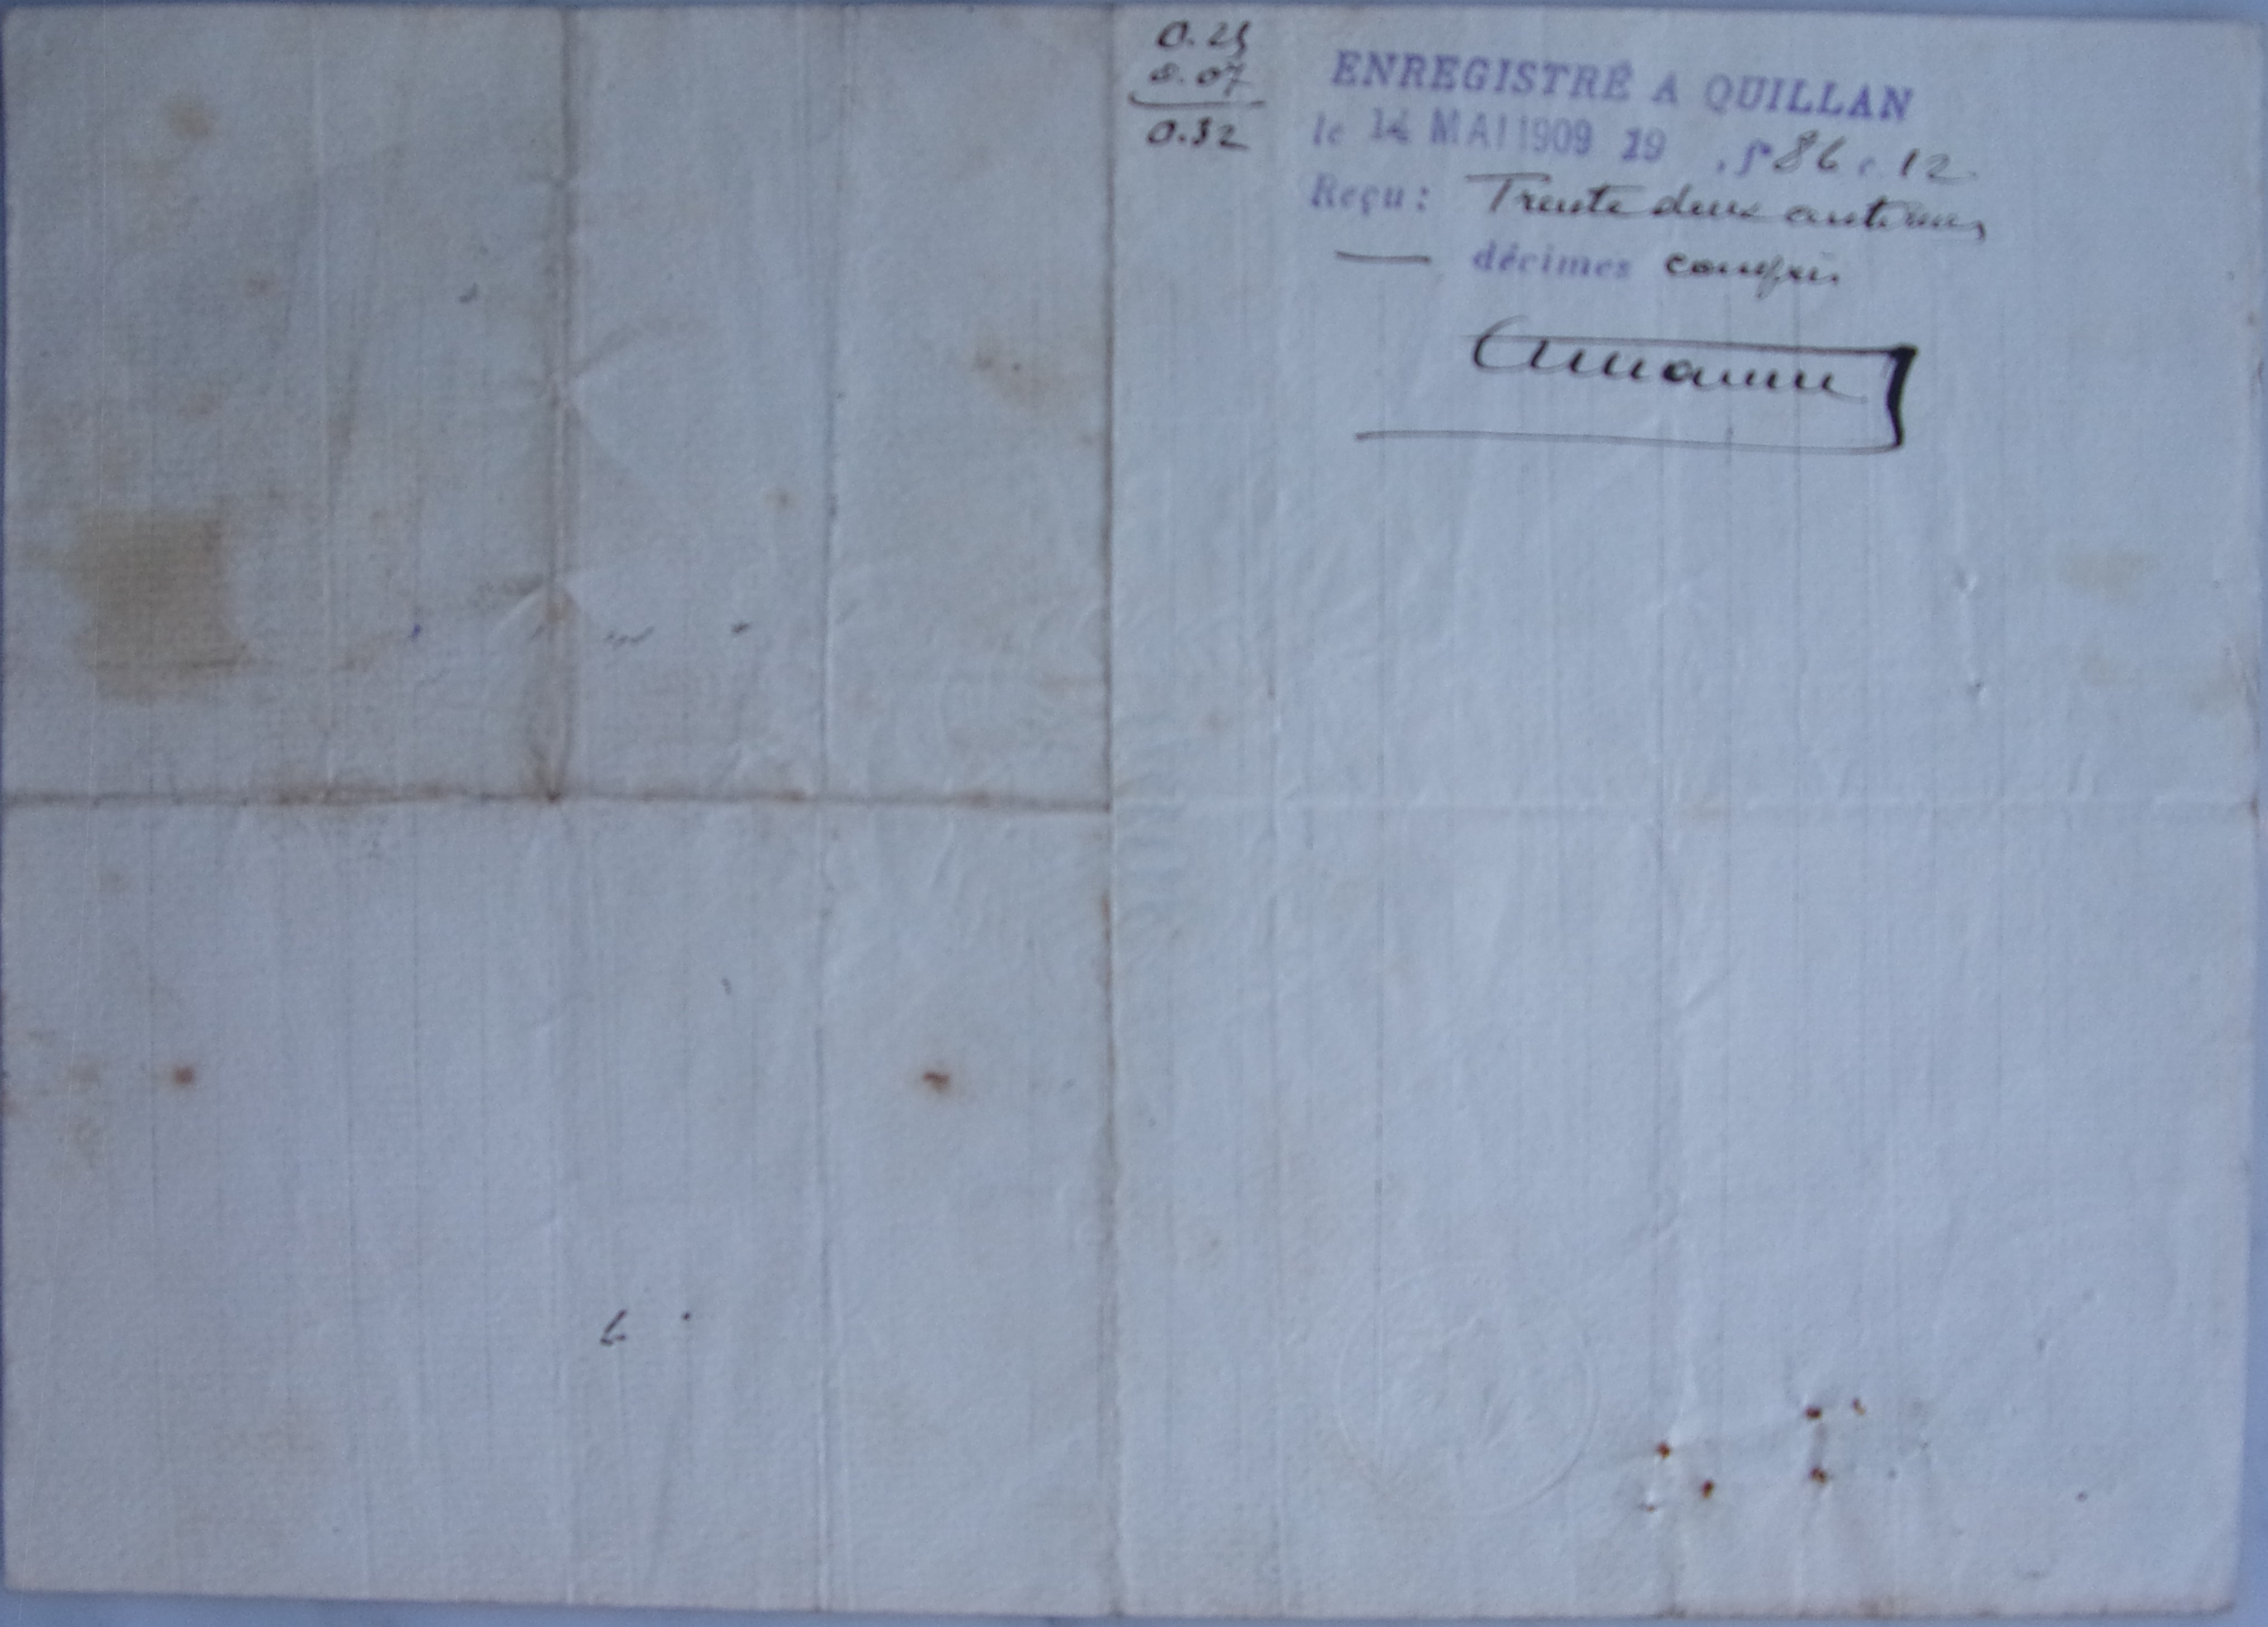 0.25
0.07
0.32
ENREGISTRÉ A QUILLAN
le 14 MAI 1909 19 , f° 86 c. 12
Reçu : Trente deux centimes
décimes compris